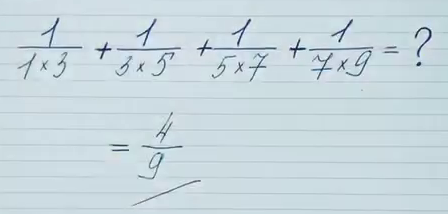 1/1×3 + 1/3×5 + 1/5×7 + 1/7×9 = ?
= 4/9